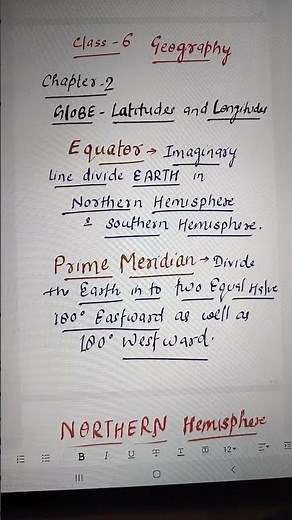 Class-6 Geography
Chapter-2
GLOBE - Latitudes and Longitudes
Equator → Imaginary
line divide EARTH in
Northern Hemisphere
& Southern Hemisphere.
Prime Meridian → Divide
the Earth in to two Equal Halve
180° Eastward as well as
180° Westward.
NORTHERN Hemisphere
B I U T T 12